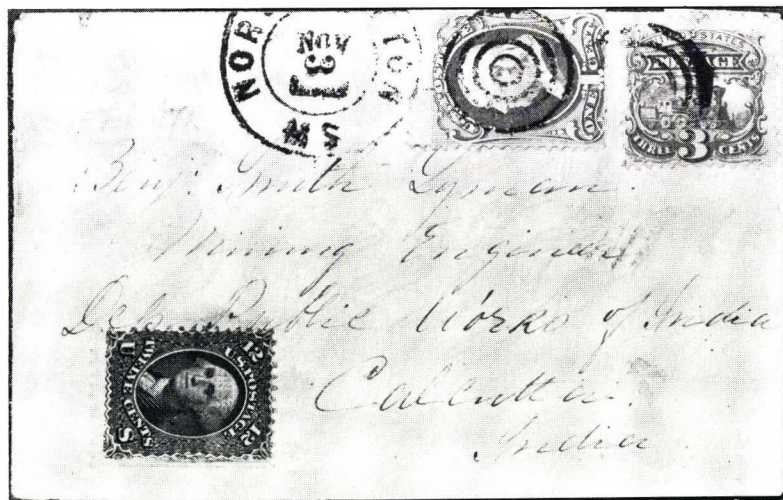 NOR TON
NOV
3
MS
UNITED STATES
POSTAGE
THREE CENTS
3
Benj. Smith Lyman.
Mining Engineer
Dep. Public Works of India
Calcutta.
India
U 12
U.S. POSTAGE
TWELVE CENTS
S 12